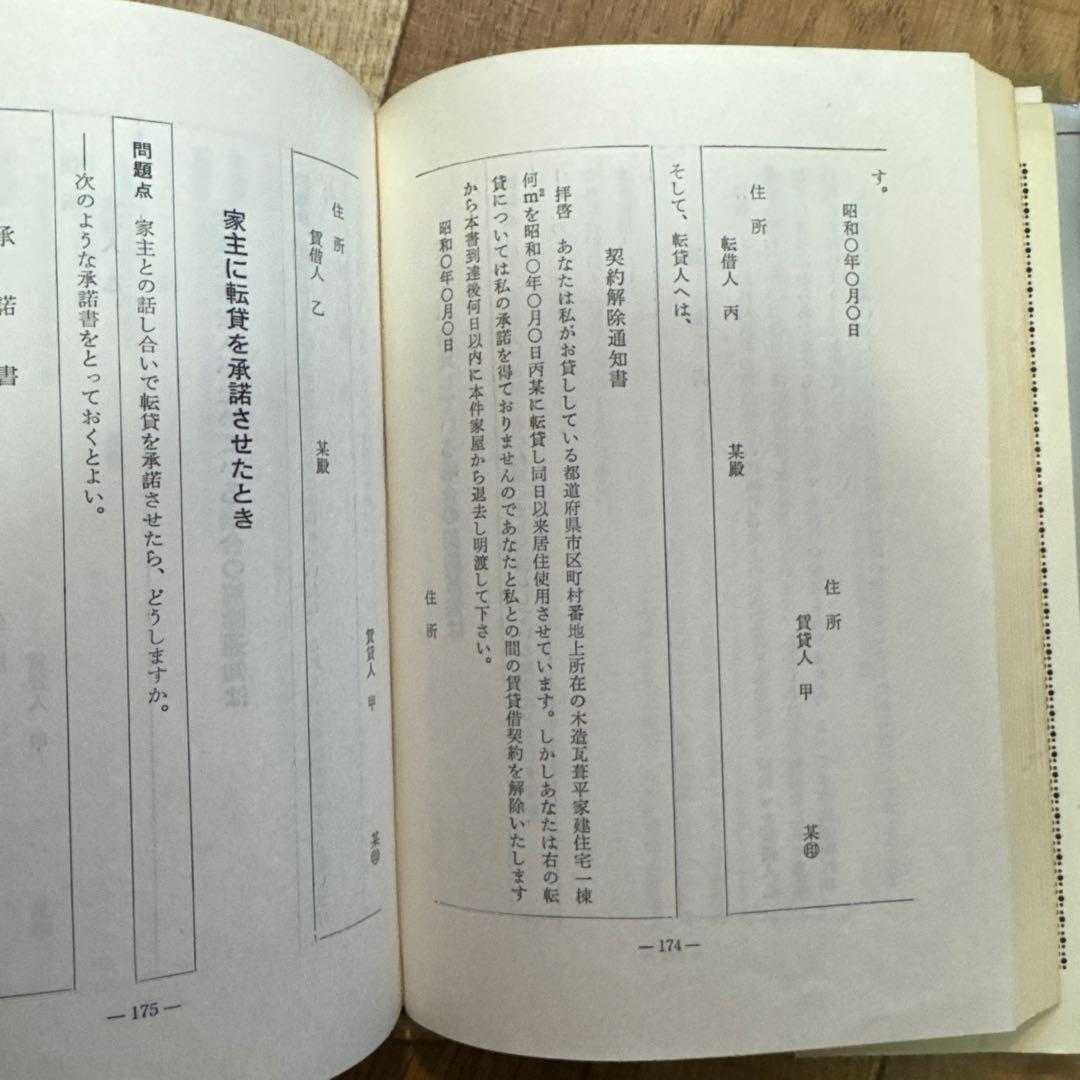 す。
昭和〇年〇月〇日
住所
賃貸人 甲 某㊞
住所
転借人 丙 某殿
そして、転貸人へは、
契約解除通知書
拝啓 あなたは私がお貸ししている都道府県市区町村番地上所在の木造瓦葺平家建住宅一棟
何m²を昭和〇年〇月〇日丙某に転貸し同日以来居住使用させています。しかしあなたは右の転
貸については私の承諾を得ておりませんのであなたと私との間の賃貸借契約を解除いたします
から本書到達後何日以内に本件家屋から退去し明渡して下さい。
昭和〇年〇月〇日
住所
— 174 —
賃貸人 甲 某㊞
住所
賃借人 乙 某殿
家主に転貸を承諾させたとき
問題点 家主との話し合いで転貸を承諾させたら、どうしますか。
——次のような承諾書をとっておくとよい。
承諾書
— 175 —